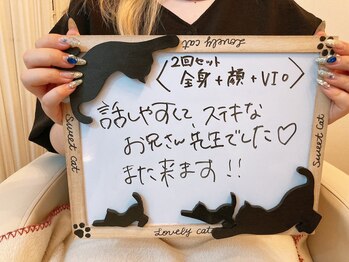 Lovely cat
2回セット
〈全身+顔+VIO〉
話しやすくて、ステキな
お兄さん先生でした♡
また来ます!!
Sweet Cat
Sweet Cat
Lovely cat